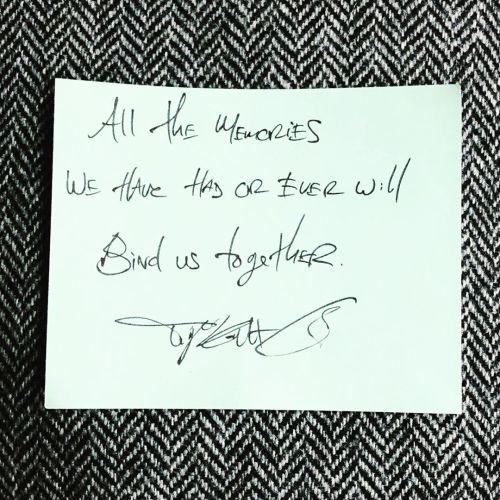 All the MEMORIES
WE HAVE HAD OR EVER Will
Bind us togetHER.